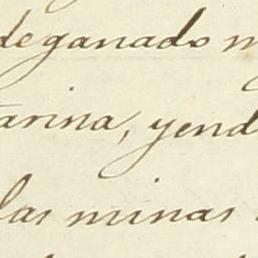 de ganado m
arina, yend
las minas